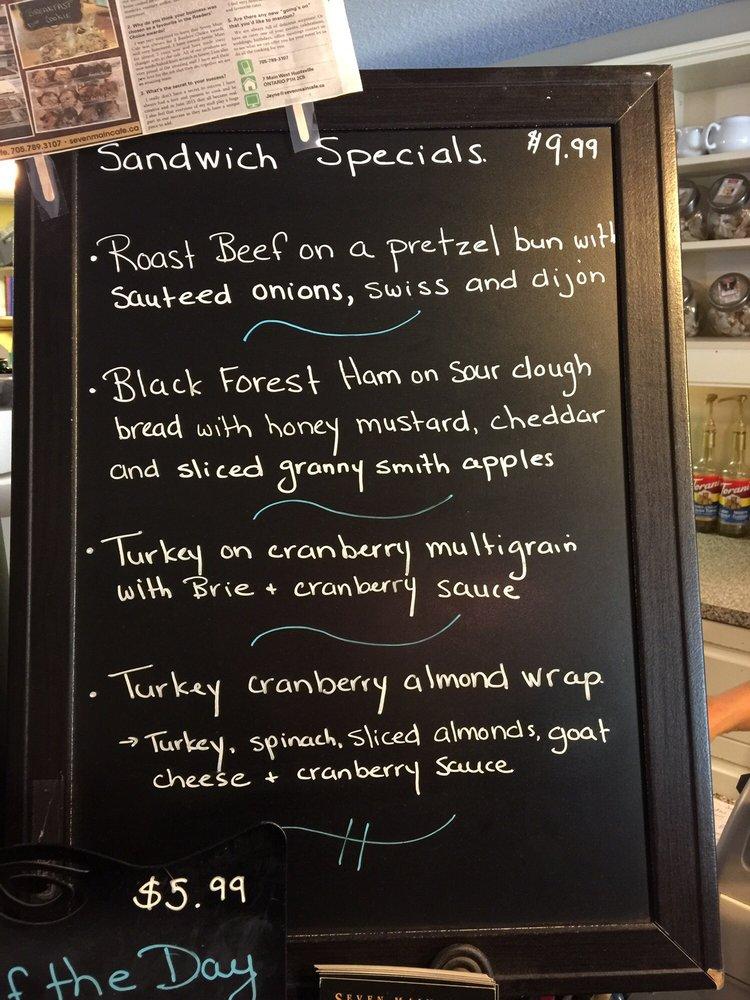 BREAKFAST
COOKIE
2. Why do you think your business was
chosen as a favourite in the Readers
Choice awards?
3. What's the secret to your success?
5. Are there any new "going's on"
that you'd like to mention?
705-789-3107
7 Main West Huntsville
ONTARIO P1H 2C5
705.789.3107 • sevenmaincafe.ca
Sandwich Specials. $9.99
• Roast Beef on a pretzel bun with
sauteed onions, swiss and dijon
• Black Forest Ham on sour dough
bread with honey mustard, cheddar
and sliced granny smith apples
• Turkey on cranberry multigrain
with Brie + cranberry sauce
• Turkey cranberry almond wrap.
→ Turkey, spinach, sliced almonds, goat
cheese + cranberry sauce
$5.99
f the Day
SEVEN MAIN
Torani
Torani